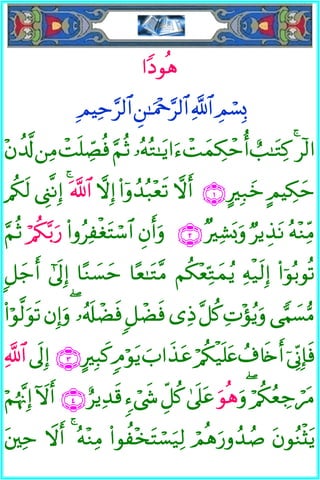 هُودًا
بِسْمِ ٱللَّهِ ٱلرَّحْمَـٰنِ ٱلرَّحِيمِ
الٓرۚ كِتَـٰبٌ أُحْكِمَتْ ءَايَـٰتُهُۥ ثُمَّ فُصِّلَتْ مِن لَّدُنْ
حَكِيمٍ خَبِيرٍ ١ أَلَّا تَعْبُدُوٓا۟ إِلَّا ٱللَّهَۚ إِنَّنِى لَكُم
مِّنْهُ نَذِيرٌ وَبَشِيرٌ ٢ وَأَنِ ٱسْتَغْفِرُوا۟ رَبَّكُمْ ثُمَّ
تُوبُوٓا۟ إِلَيْهِ يُمَتِّعْكُم مَّتَـٰعًا حَسَنًا إِلَىٰٓ أَجَلٍ
مُّسَمًّى وَيُؤْتِ كُلَّ ذِى فَضْلٍ فَضْلَهُۥۖ وَإِن تَوَلَّوْا۟
فَإِنِّىٓ أَخَافُ عَلَيْكُمْ عَذَابَ يَوْمٍ كَبِيرٍ ٣ إِلَى ٱللَّهِ
مَرْجِعُكُمْۖ وَهُوَ عَلَىٰ كُلِّ شَىْءٍ قَدِيرٌ ٤ أَلَآ إِنَّهُمْ
يَثْنُونَ صُدُورَهُمْ لِيَسْتَخْفُوا۟ مِنْهُۚ أَلَا حِينَ